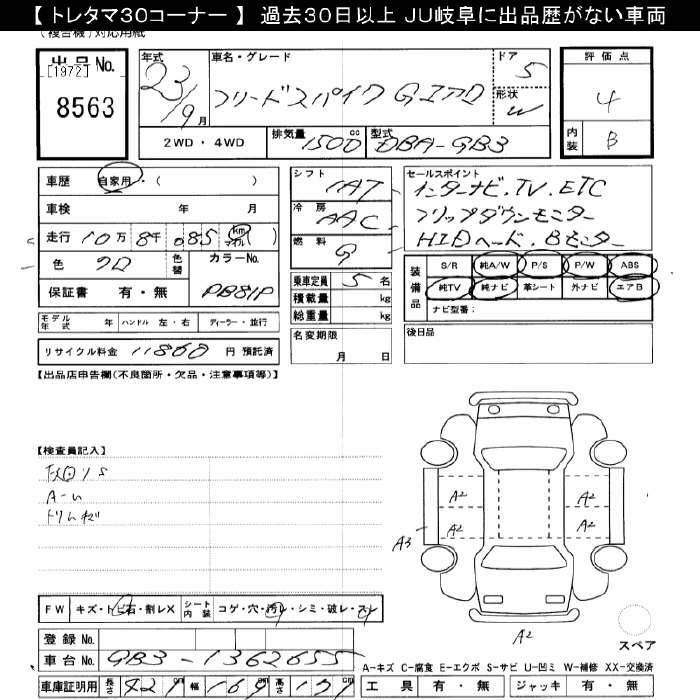 【 トレタマ30コーナー 】 過去30日以上 JU岐阜に出品歴がない車両
(複合機)対応用紙
出品No.
[1972]
8563
年式 23/9月
車名・グレード
フリードスパイク G エアロ
ドア 5
形状 W
評価点
4
内装 B
2WD・4WD
排気量 1500 cc
型式 DBA-GB3
車歴 自家用・( )
車検 年 月
走行 10万 8千 085 km マイル
色 クロ 色替
カラーNo.
保証書 有・無
PB81P
シフト IAT
冷房 AAC
燃料 G
乗車定員 5 名
積載量 kg
総重量 kg
名変期限
月 日
セールスポイント
インターナビ.TV.ETC
フリップダウンモニター
HIDヘッド.Bモニター
装備品
S/R 純A/W P/S P/W ABS
純TV 純ナビ 革シート 外ナビ エアB
ナビ型番:
後日品
モデル年式 年 ハンドル 左・右 ディーラー・並行
リサイクル料金 11860 円 預託済
【出品店申告欄(不良箇所・欠品・注意事項等)】
【検査員記入】
A2 A2
A2 A2
A3
A2
FW キズ・トビ石・割レX シート内装 コゲ・穴・汚レ・シミ・破レ・スレ
登録 No.
車台 No. GB3-1362655
スペア
A-キズ C-腐食 E-エクボ S-サビ U-凹ミ W-補修 XX-交換済
車庫証明用 長さ 421 幅 169 高さ 171
工具 有・無 ジャッキ 有・無